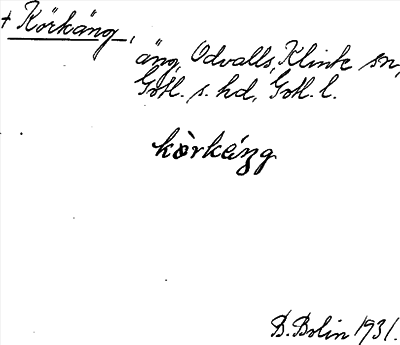 + Körkäng,
äng, Odvalls, Klinte sn,
Gotl. s. hd, Gotl. l.
kòrkäŋg
D. Bolin 1931.